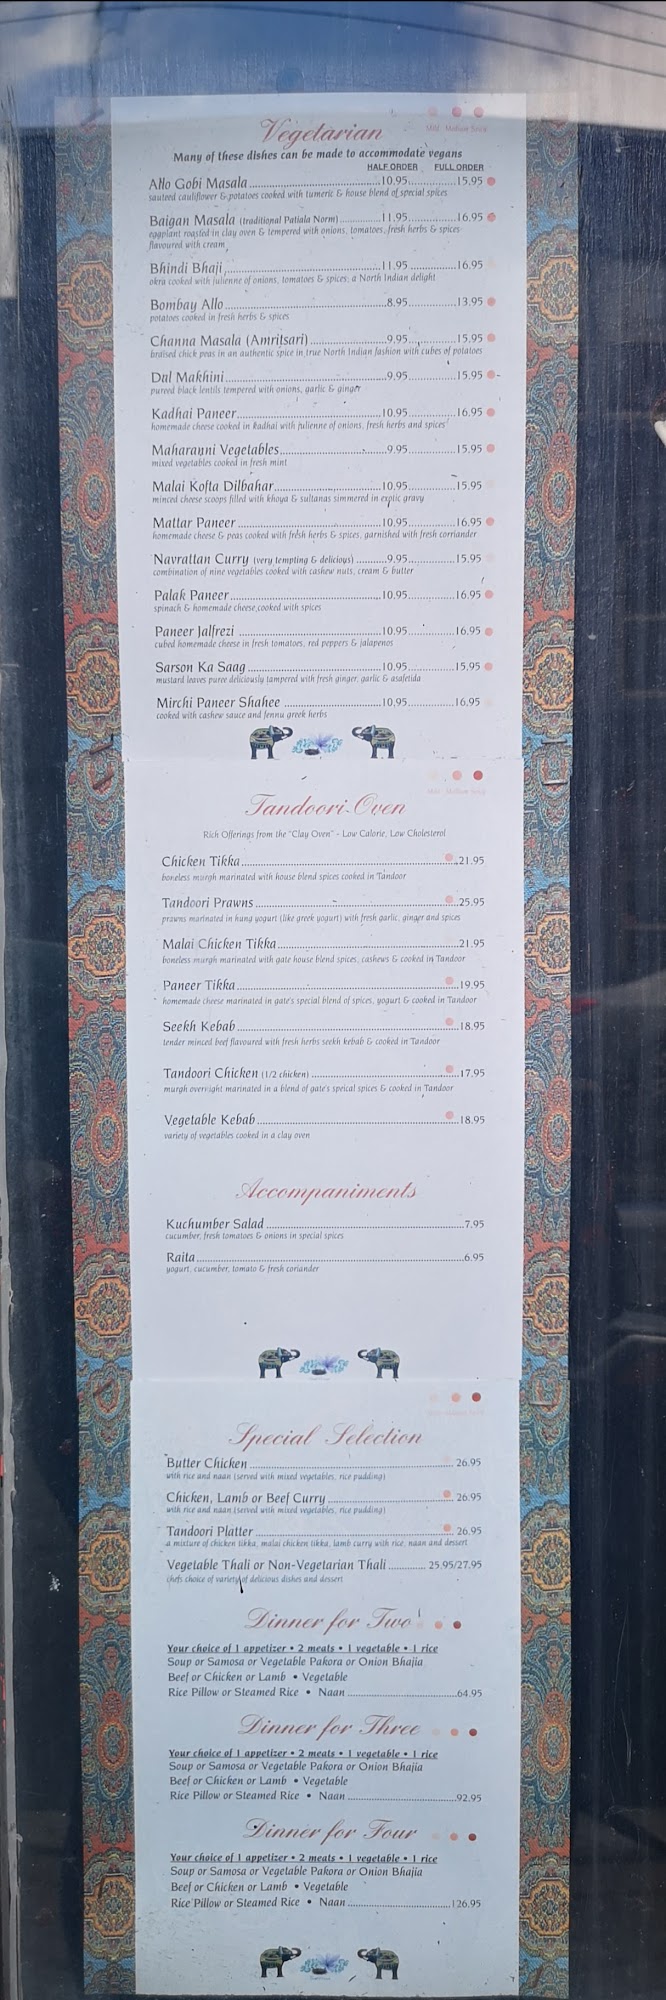 Vegetarian
Mild Medium Spicy
Many of these dishes can be made to accommodate vegans
HALF ORDER FULL ORDER
Allo Gobi Masala 10.95 15.95
sauteed cauliflower & potatoes cooked with tumeric & house blend of special spices
Baigan Masala (traditional Patiala Norm) 11.95 16.95
eggplant roasted in clay oven & tempered with onions, tomatoes, fresh herbs & spices
flavoured with cream
Bhindi Bhaji 11.95 16.95
okra cooked with julienne of onions, tomatoes & spices; a North Indian delight
Bombay Allo 8.95 13.95
potatoes cooked in fresh herbs & spices
Channa Masala (Amritsari) 9.95 15.95
braised chick peas in an authentic spice in true North Indian fashion with cubes of potatoes
Dal Makhini 9.95 15.95
pureed black lentils tempered with onions, garlic & ginger
Kadhai Paneer 10.95 16.95
homemade cheese cooked in kadhai with julienne of onions, fresh herbs and spices
Maharanni Vegetables 9.95 15.95
mixed vegetables cooked in fresh mint
Malai Kofta Dilbahar 10.95 15.95
minced cheese scoops filled with khoya & sultanas simmered in exotic gravy
Mattar Paneer 10.95 16.95
homemade cheese & peas cooked with fresh herbs & spices, garnished with fresh corriander
Navrattan Curry (very tempting & delicious) 9.95 15.95
combination of nine vegetables cooked with cashew nuts, cream & butter
Palak Paneer 10.95 16.95
spinach & homemade cheese cooked with spices
Paneer Jalfrezi 10.95 16.95
cubed homemade cheese in fresh tomatoes, red peppers & jalapenos
Sarson Ka Saag 10.95 15.95
mustard leaves puree deliciously tampered with fresh ginger, garlic & asafetida
Mirchi Paneer Shahee 10.95 16.95
cooked with cashew sauce and fennu greek herbs
Mild Medium Spicy
Tandoori Oven
Rich Offerings from the "Clay Oven" - Low Calorie, Low Cholesterol
Chicken Tikka 21.95
boneless murgh marinated with house blend spices cooked in Tandoor
Tandoori Prawns 25.95
prawns marinated in hung yogurt (like greek yogurt) with fresh garlic, ginger and spices
Malai Chicken Tikka 21.95
boneless murgh marinated with gate house blend spices, cashews & cooked in Tandoor
Paneer Tikka 19.95
homemade cheese marinated in gate's special blend of spices, yogurt & cooked in Tandoor
Seekh Kebab 18.95
tender minced beef flavoured with fresh herbs seekh kebab & cooked in Tandoor
Tandoori Chicken (1/2 chicken) 17.95
murgh overnight marinated in a blend of gate's speical spices & cooked in Tandoor
Vegetable Kebab 18.95
variety of vegetables cooked in a clay oven
Accompaniments
Kuchumber Salad 7.95
cucumber, fresh tomatoes & onions in special spices
Raita 6.95
yogurt, cucumber, tomato & fresh coriander
Special Selection
Butter Chicken 26.95
with rice and naan (served with mixed vegetables, rice pudding)
Chicken, Lamb or Beef Curry 26.95
with rice and naan (served with mixed vegetables, rice pudding)
Tandoori Platter 26.95
a mixture of chicken tikka, malai chicken tikka, lamb curry with rice, naan and dessert
Vegetable Thali or Non-Vegetarian Thali 25.95/27.95
chefs choice of variety of delicious dishes and dessert
Dinner for Two
Your choice of 1 appetizer • 2 meats • 1 vegetable • 1 rice
Soup or Samosa or Vegetable Pakora or Onion Bhajia
Beef or Chicken or Lamb • Vegetable
Rice Pillow or Steamed Rice • Naan 64.95
Dinner for Three
Your choice of 1 appetizer • 2 meats • 1 vegetable • 1 rice
Soup or Samosa or Vegetable Pakora or Onion Bhajia
Beef or Chicken or Lamb • Vegetable
Rice Pillow or Steamed Rice • Naan 92.95
Dinner for Four
Your choice of 1 appetizer • 2 meats • 1 vegetable • 1 rice
Soup or Samosa or Vegetable Pakora or Onion Bhajia
Beef or Chicken or Lamb • Vegetable
Rice Pillow or Steamed Rice • Naan 126.95